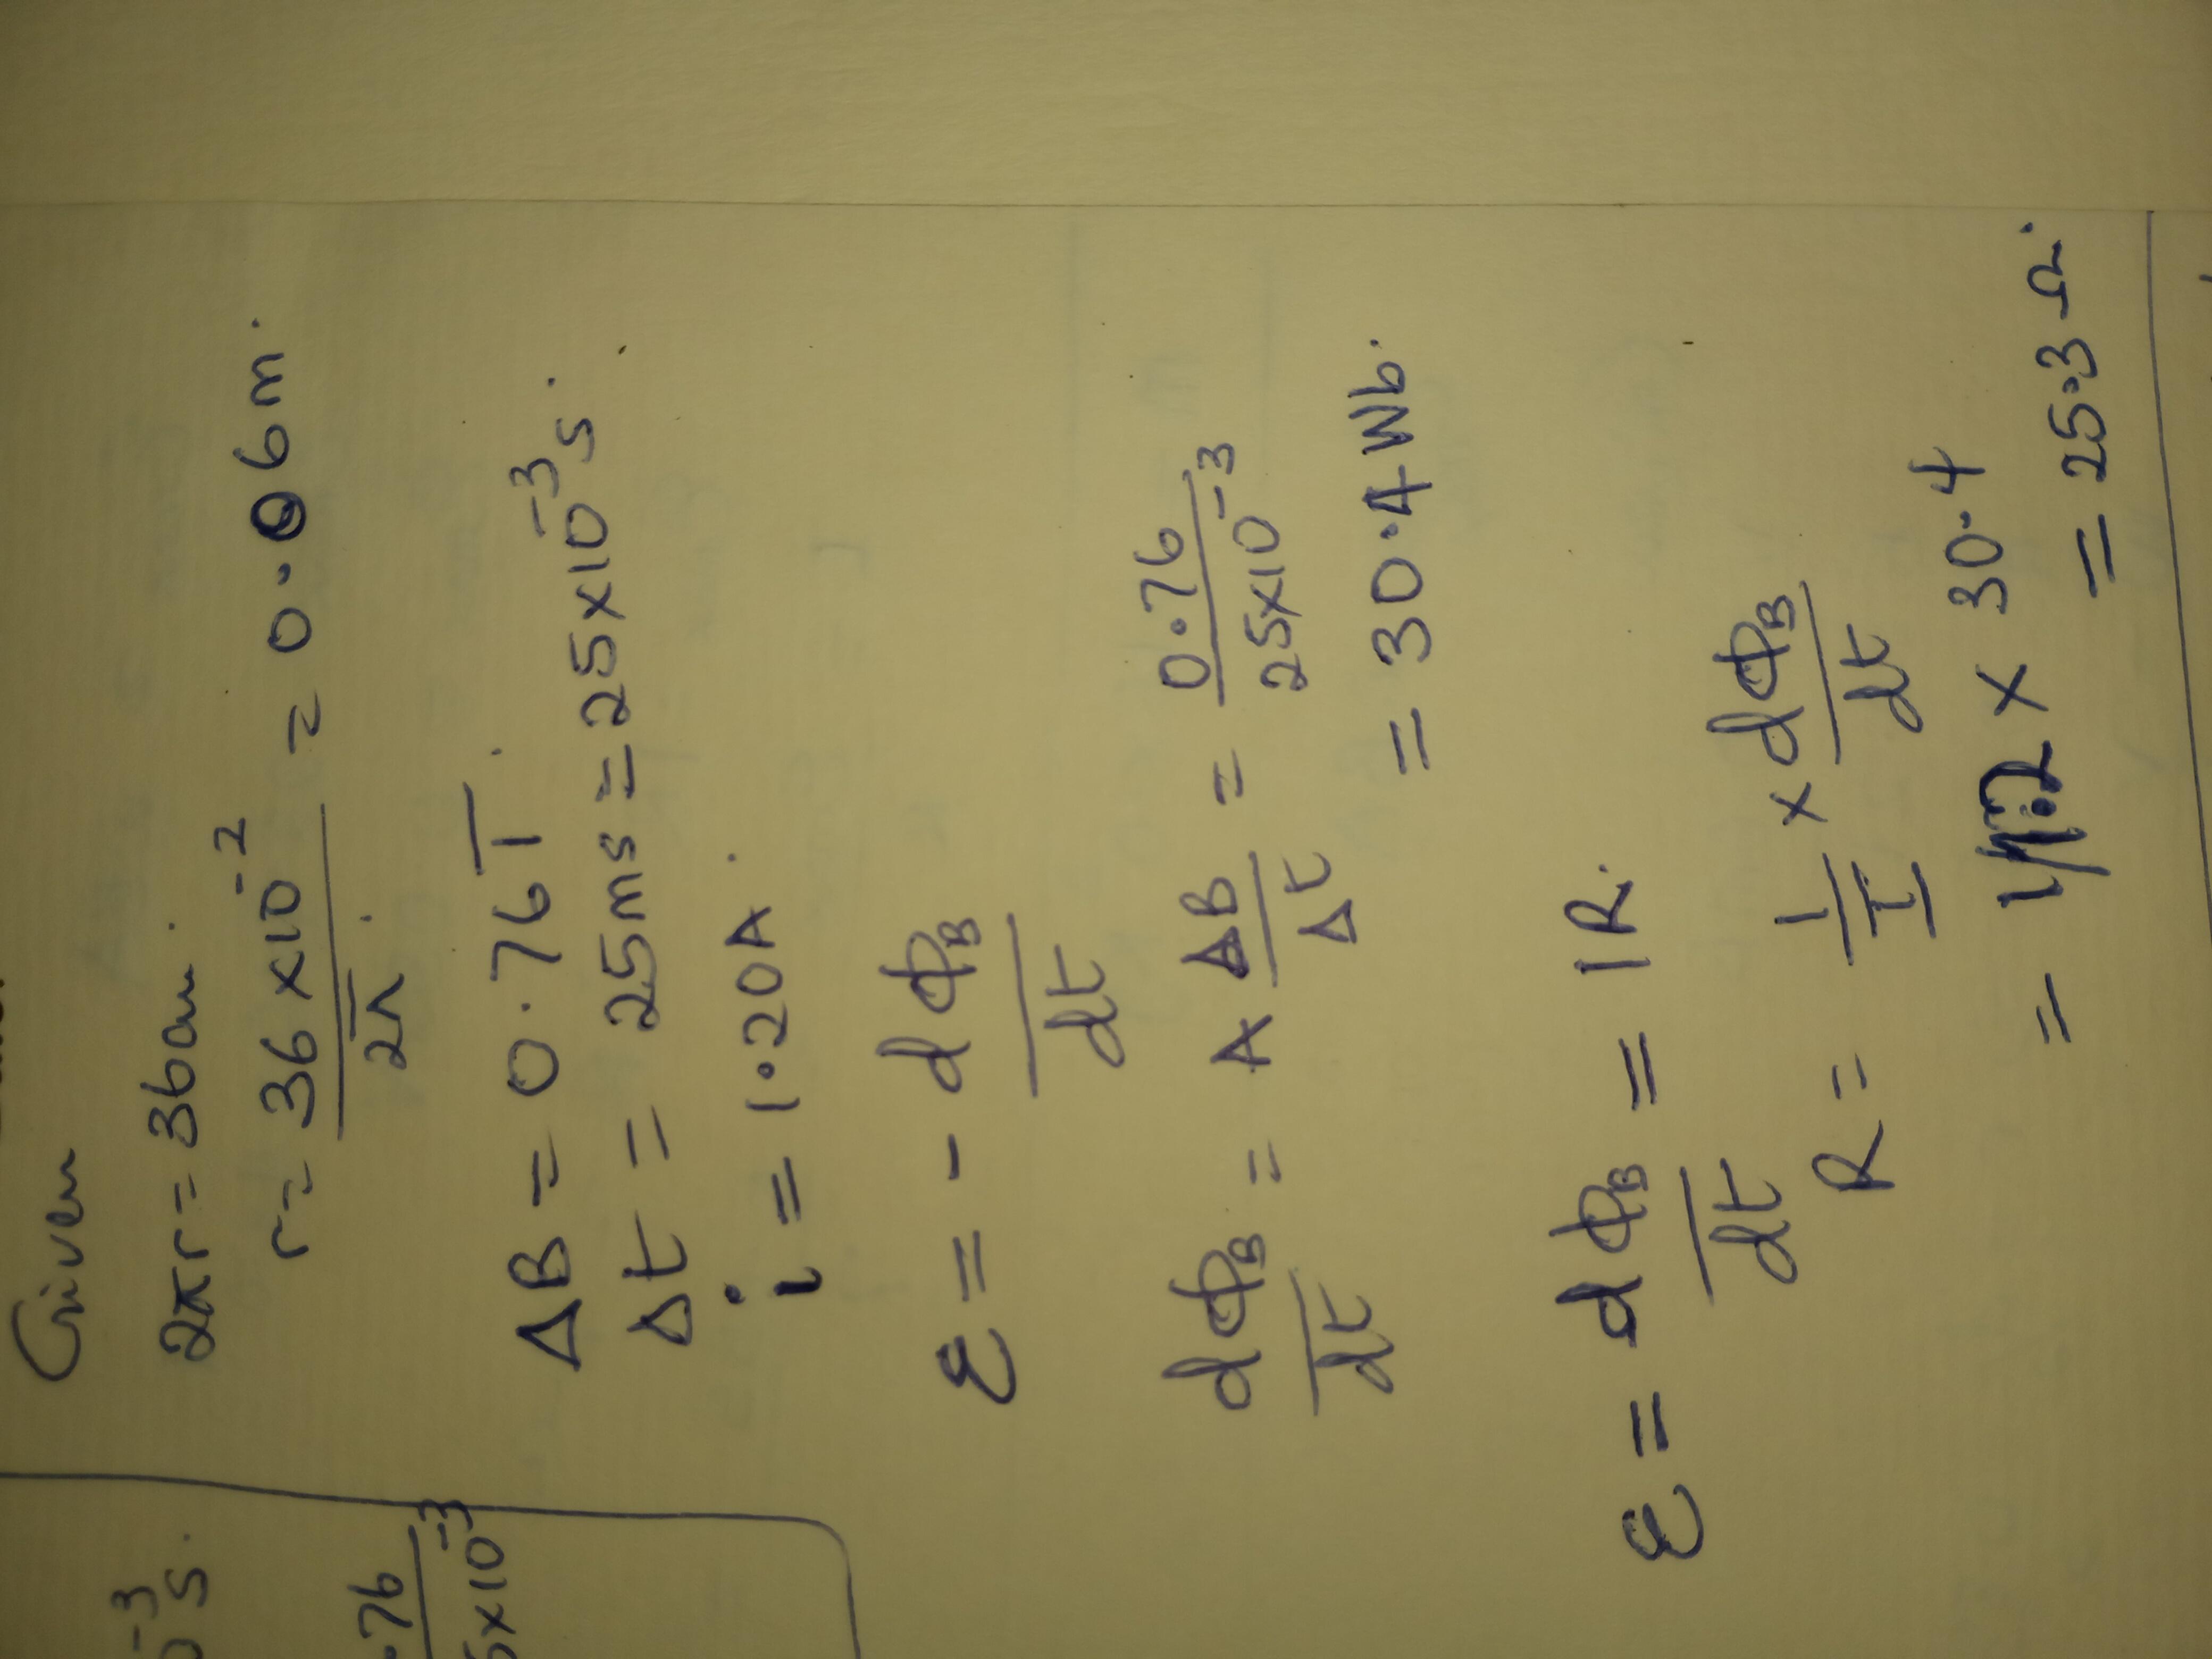 Given
2πr = 36cm.
r = 36 × 10⁻² / 2π = 0.06m.
ΔB = 0.76T.
Δt = 25ms = 25×10⁻³s.
i = 1.20A.
ε = - dΦ_B / dt
dΦ_B / dt = A ΔB / Δt = 0.76 / 25×10⁻³
= 30.4 Wb.
ε = dΦ_B / dt = IR.
R = 1/I × dΦ_B / dt
= 1/1.2 × 30.4
= 25.3 Ω.
⁻³s.
.76
5×10⁻³